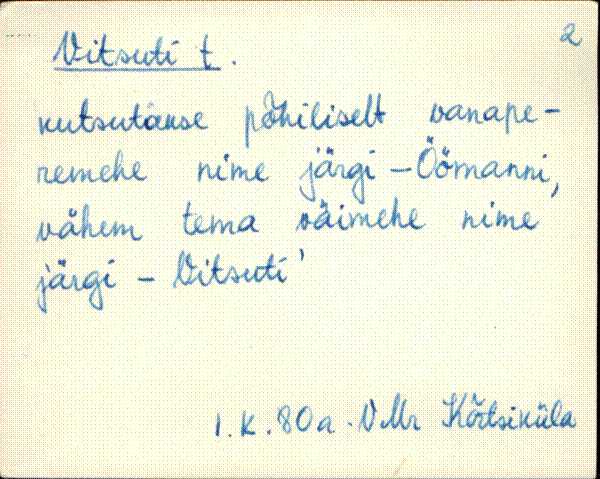 2
Vitsuti t.
kutsutakse põhiliselt vanape-
remehe nime järgi - Öömanni,
vähem tema väimehe nime
järgi - Vitsuti'
I. K. 80a. VMr Kõrtsiküla